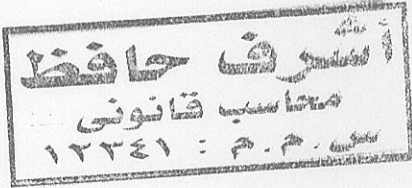 أشرف حافظ
محاسب قانونى
س . م . م : ١٢٢٤١